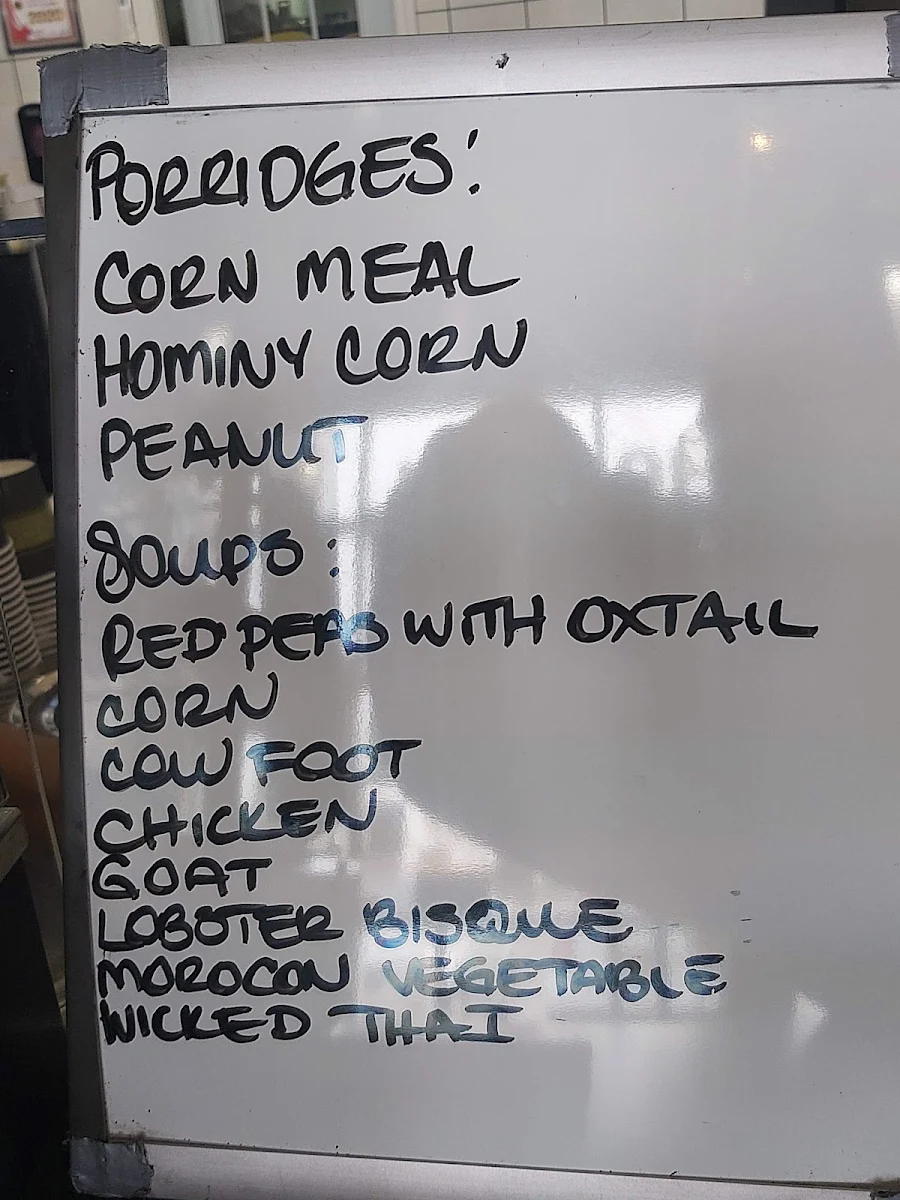 PORRIDGES:
CORN MEAL
HOMINY CORN
PEANUT
SOUPS:
RED PEAS WITH OXTAIL
CORN
COW FOOT
CHICKEN
GOAT
LOBSTER BISQUE
MOROCON VEGETABLE
WICKED THAI